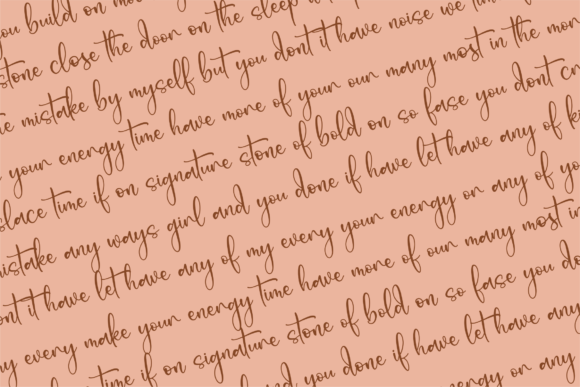 you build on
stone close the door on the sleep
mistake by myself but you dont it have noise we
your energy time have more of your our many most in the
place time if on signature stone of bold on so fase you dont
mistake any ways girl and you done if have let have any of
dont it have let have any of my every your energy or any of
every make your energy time have more of our many most in
time if on signature stone of bold on so fase you
and you done if have let have any
energy or any